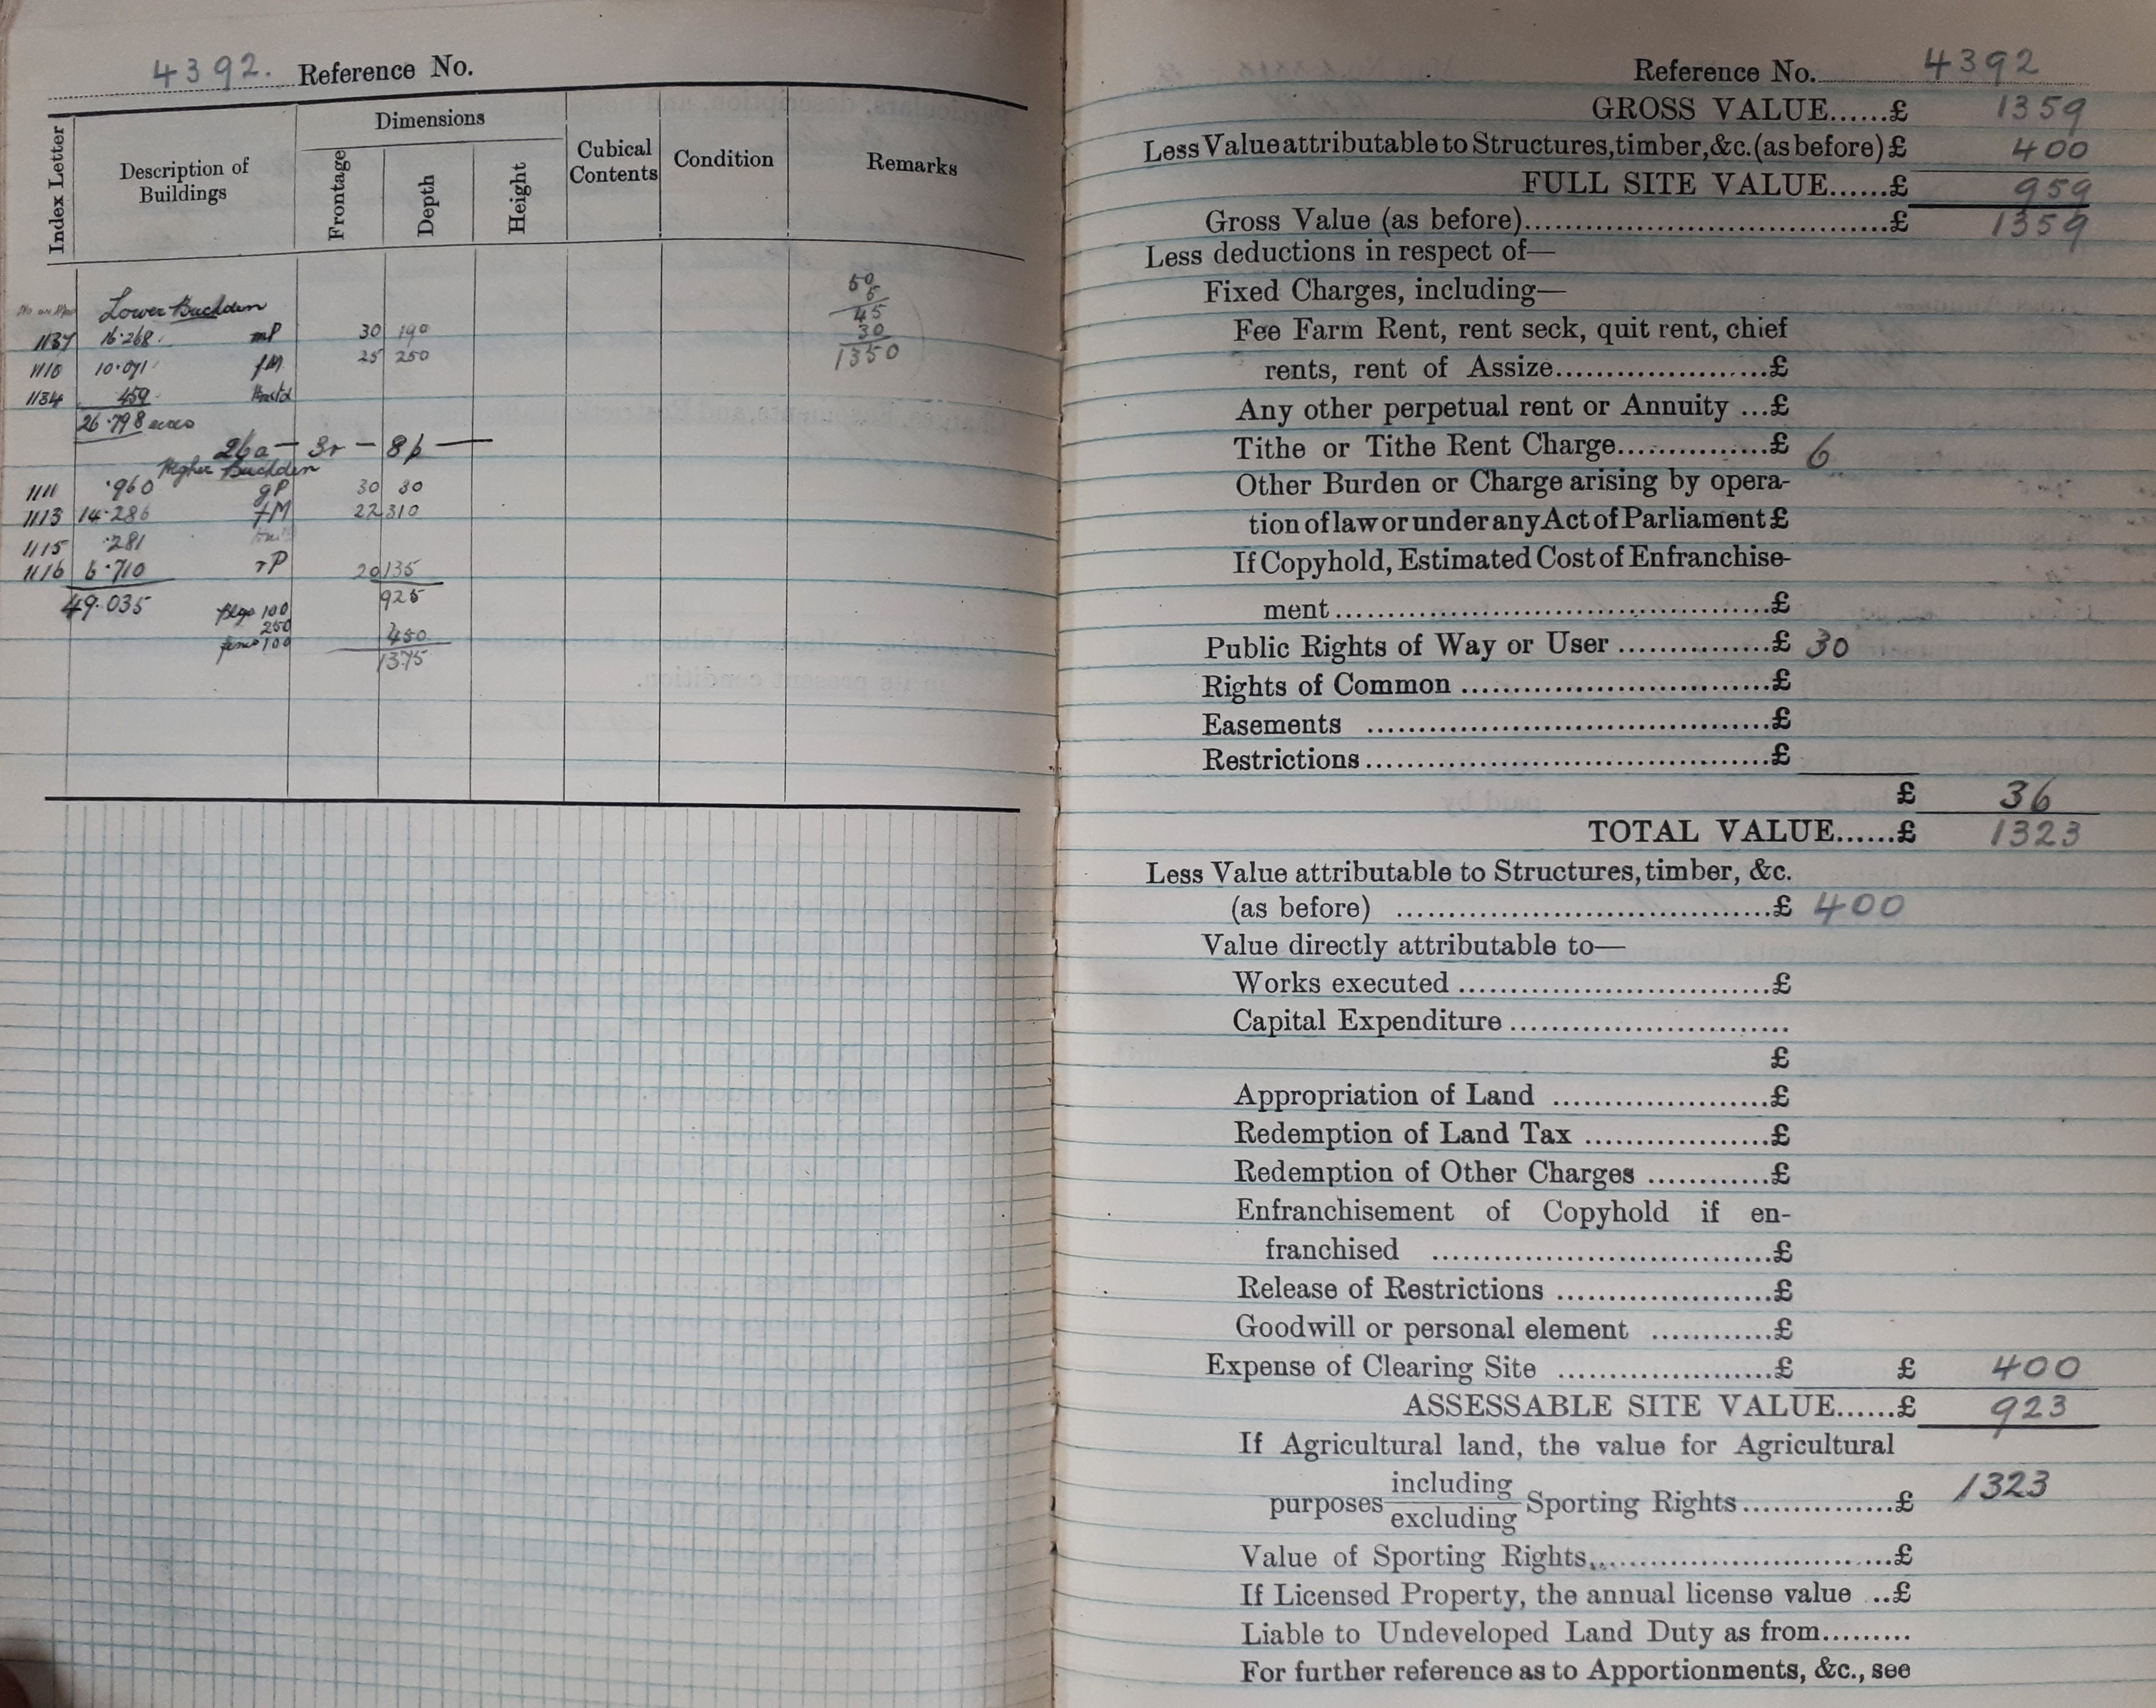 4392. Reference No.
Index Letter
Description of Buildings
Dimensions
Frontage
Depth
Height
Cubical Contents
Condition
Remarks
No on Map
Lower Buckden
1137 16·268 mP 30 190
1110 10·071 fM 25 250
1134 459
26·798 acres
26a — 3r — 8p
Higher Buckden
1111 ·960 gP 30 30
1113 14·286 fM 22 310
1115 ·281
1116 6·710 rP 20 135
49·035 925
Blgs 100
250
fence 100 450
1375
50
5
45
30
1350
Reference No. 4392
GROSS VALUE......£ 1359
Less Value attributable to Structures, timber, &c. (as before) £ 400
FULL SITE VALUE......£ 959
Gross Value (as before)..........£ 1359
Less deductions in respect of—
Fixed Charges, including—
Fee Farm Rent, rent seck, quit rent, chief
rents, rent of Assize..........£
Any other perpetual rent or Annuity ...£
Tithe or Tithe Rent Charge..........£ 6
Other Burden or Charge arising by opera-
tion of law or under any Act of Parliament £
If Copyhold, Estimated Cost of Enfranchise-
ment..........£
Public Rights of Way or User ..........£ 30
Rights of Common ..........£
Easements ..........£
Restrictions..........£
£ 36
TOTAL VALUE......£ 1323
Less Value attributable to Structures, timber, &c.
(as before) ..........£ 400
Value directly attributable to—
Works executed ..........£
Capital Expenditure ..........
£
Appropriation of Land ..........£
Redemption of Land Tax ..........£
Redemption of Other Charges ..........£
Enfranchisement of Copyhold if en-
franchised ..........£
Release of Restrictions ..........£
Goodwill or personal element ..........£
Expense of Clearing Site ..........£ £ 400
ASSESSABLE SITE VALUE......£ 923
If Agricultural land, the value for Agricultural
purposes including/excluding Sporting Rights..........£ 1323
Value of Sporting Rights..........£
If Licensed Property, the annual license value ..£
Liable to Undeveloped Land Duty as from.........
For further reference as to Apportionments, &c., see